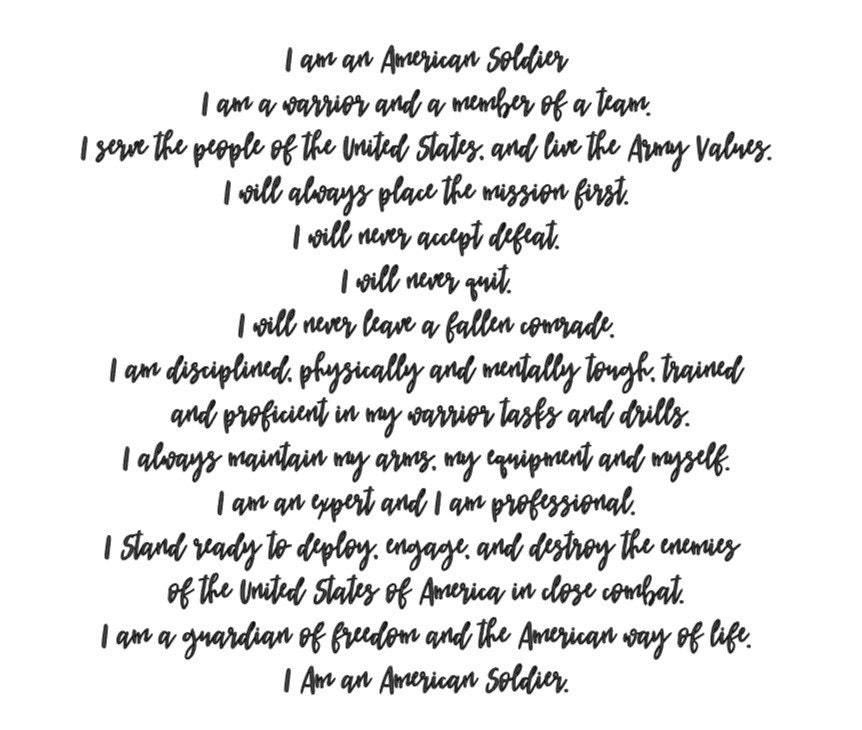 I am an American Soldier
I am a warrior and a member of a team.
I serve the people of the United States, and live the Army Values.
I will always place the mission first.
I will never accept defeat.
I will never quit.
I will never leave a fallen comrade.
I am disciplined, physically and mentally tough, trained
and proficient in my warrior tasks and drills.
I always maintain my arms, my equipment and myself.
I am an expert and I am professional.
I Stand ready to deploy, engage, and destroy the enemies
of the United States of America in close combat.
I am a guardian of freedom and the American way of life.
I Am an American Soldier.